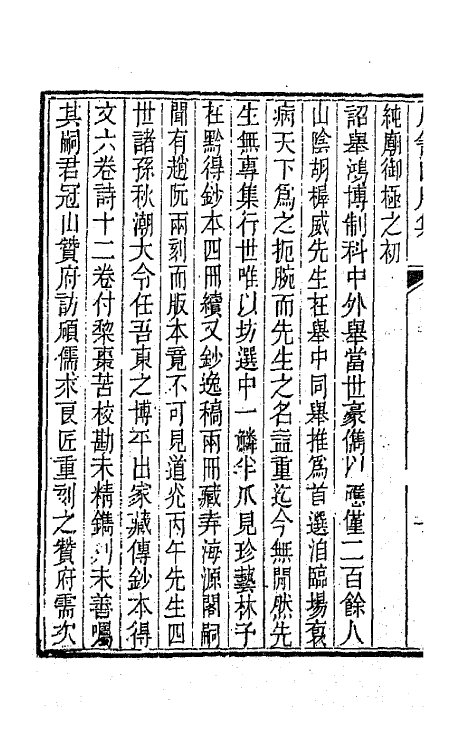 純廟御極之初
詔舉鴻博制科中外舉當世豪儁以應僅二百餘人
山陰胡樨威先生在舉中同舉推為首選洎臨場衰
病天下為之扼腕而先生之名益重迄今無閒然先
生無專集行世唯以坊選中一鱗半爪見珍藝林予
在黔得鈔本四冊續又鈔逸稿兩冊藏弆海源閣嗣
聞有趙阮兩刻而版本竟不可見道光丙午先生四
世諸孫秋潮大令任吾東之博平出家藏傳鈔本得
文六卷詩十二卷付黎棗苦校勘未精鐫刋未善囑
其嗣君冠山贊府訪碩儒求良匠重刻之贊府需次